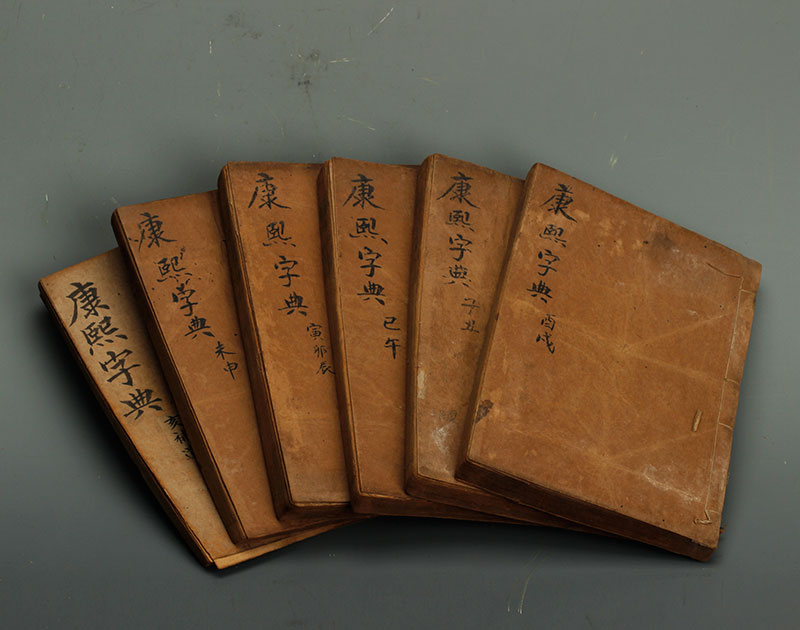 康熙字典
亥補遺
康熙字典
未申
康熙字典
寅卯辰
康熙字典
巳午
康熙字典
子丑
康熙字典
酉戌